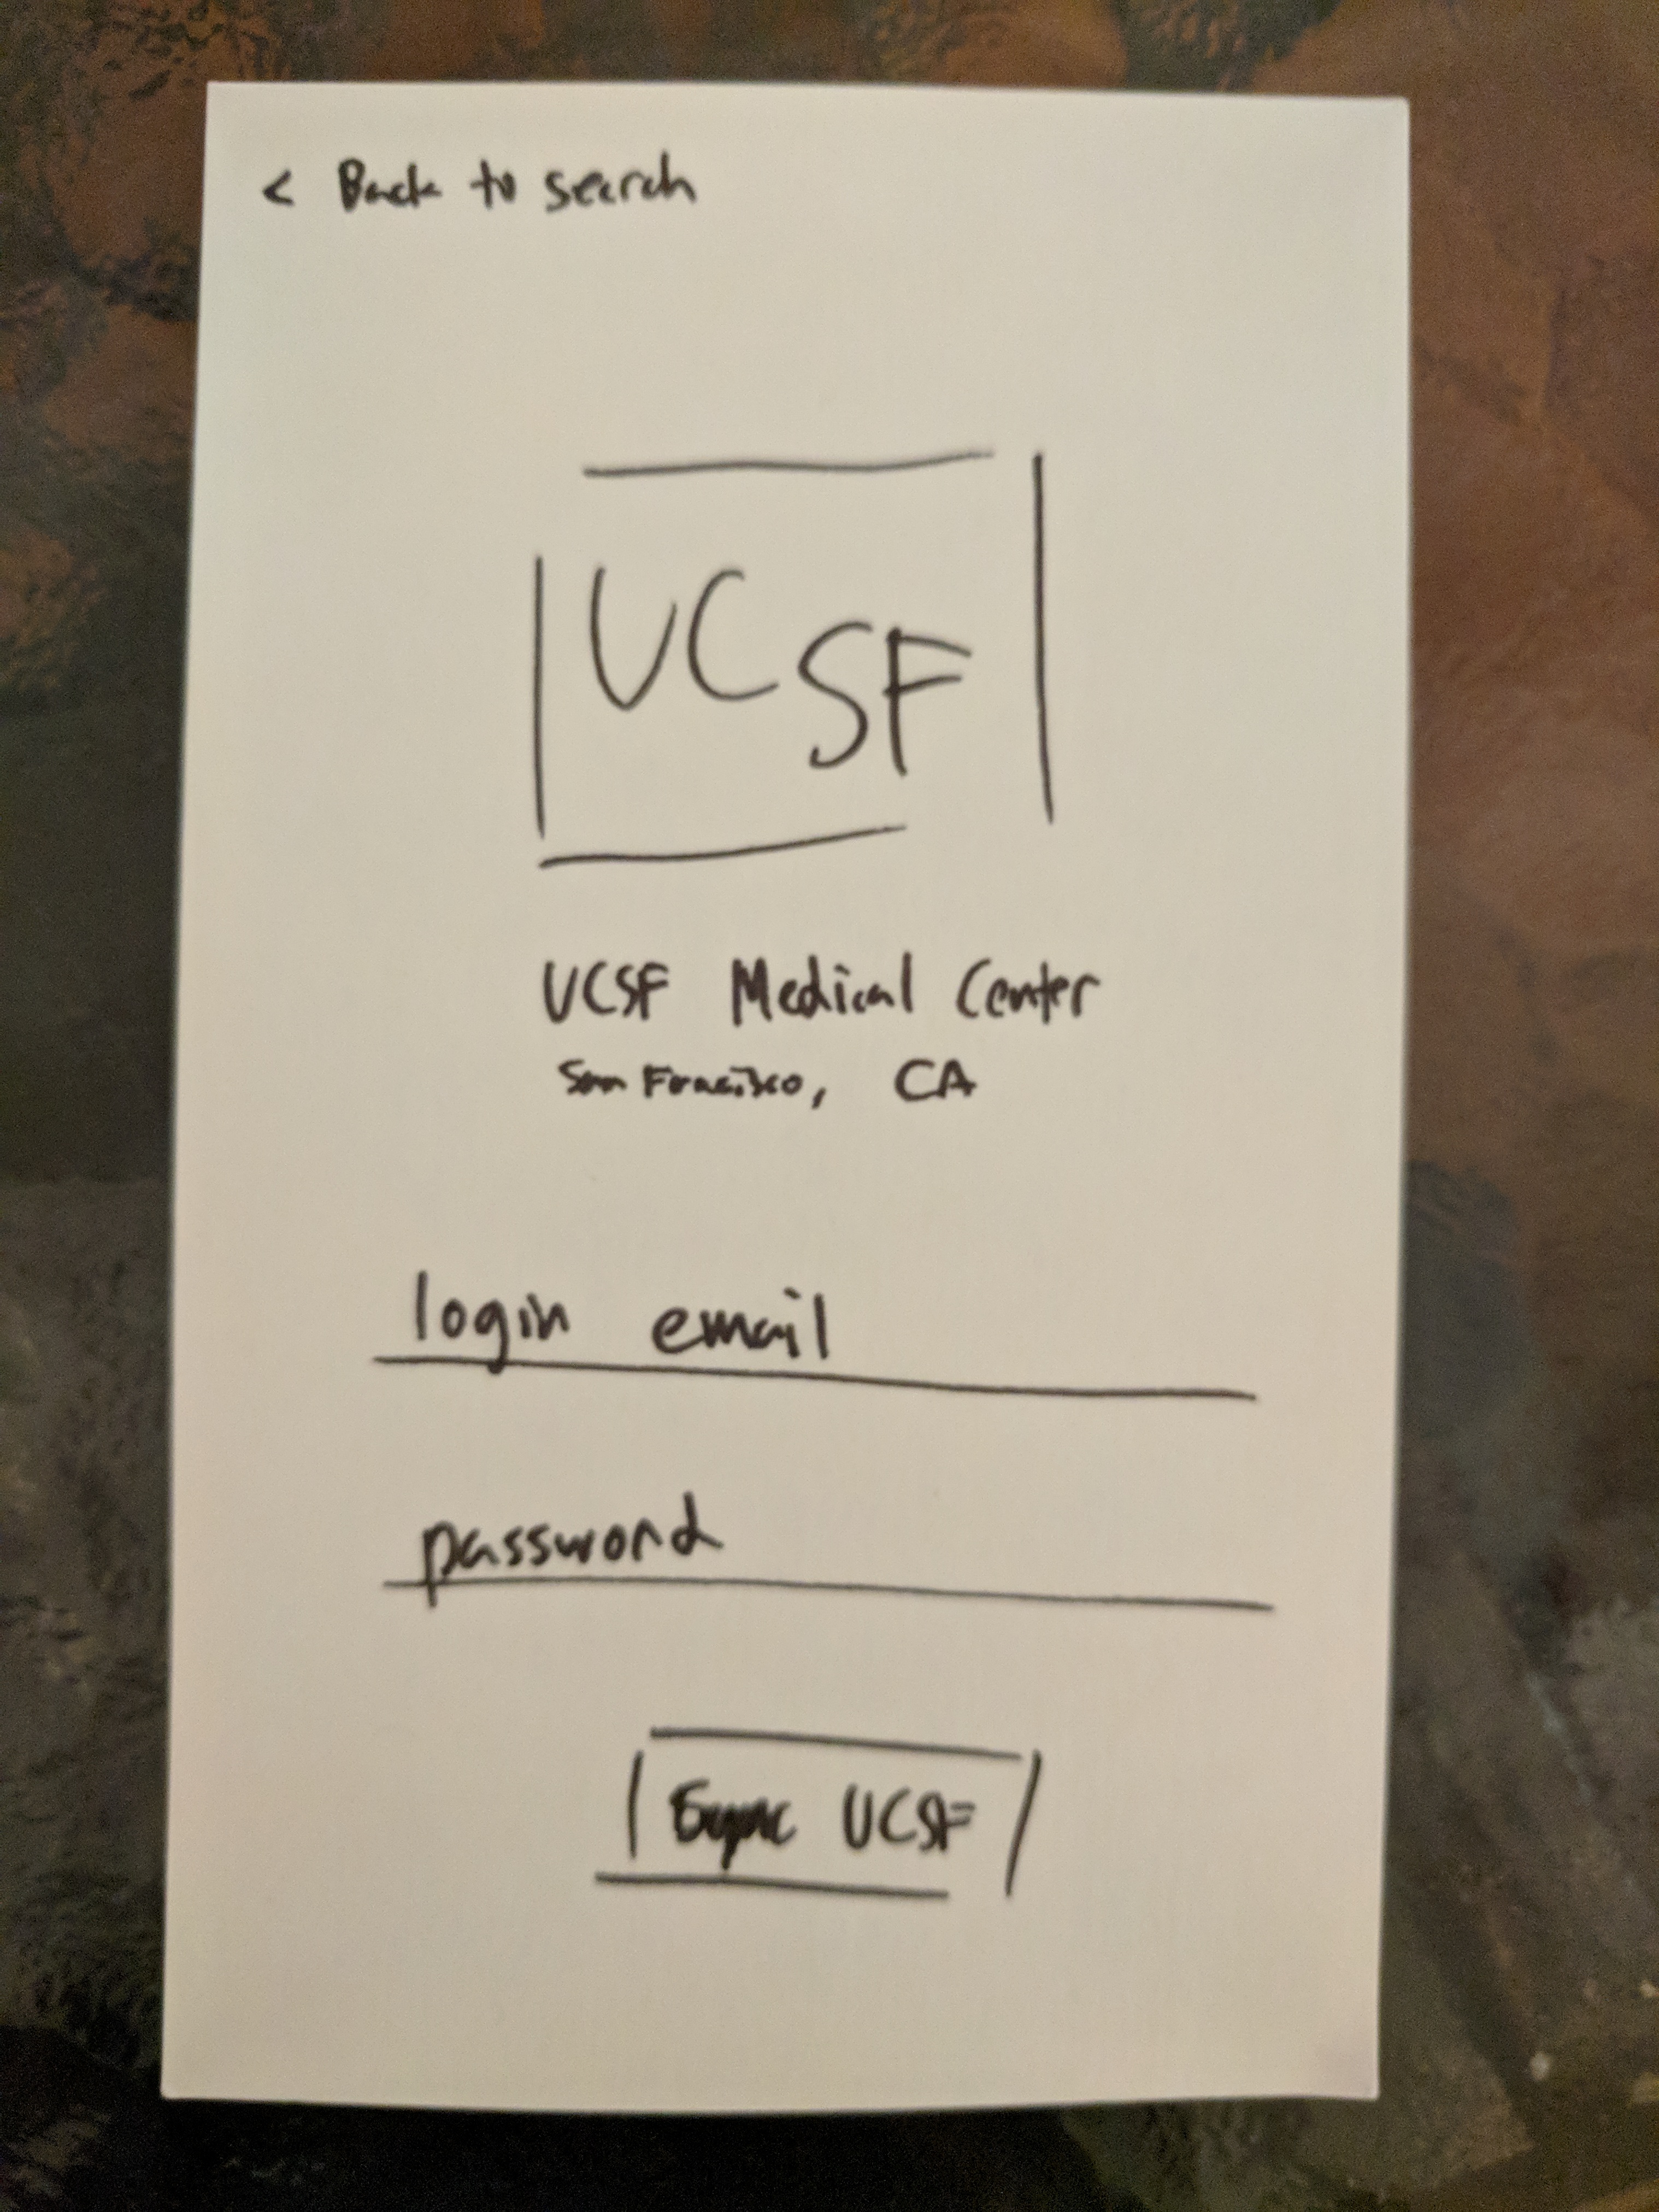 < Back to search
UCSF
UCSF Medical Center
San Francisco, CA
login email
password
Sync UCSF